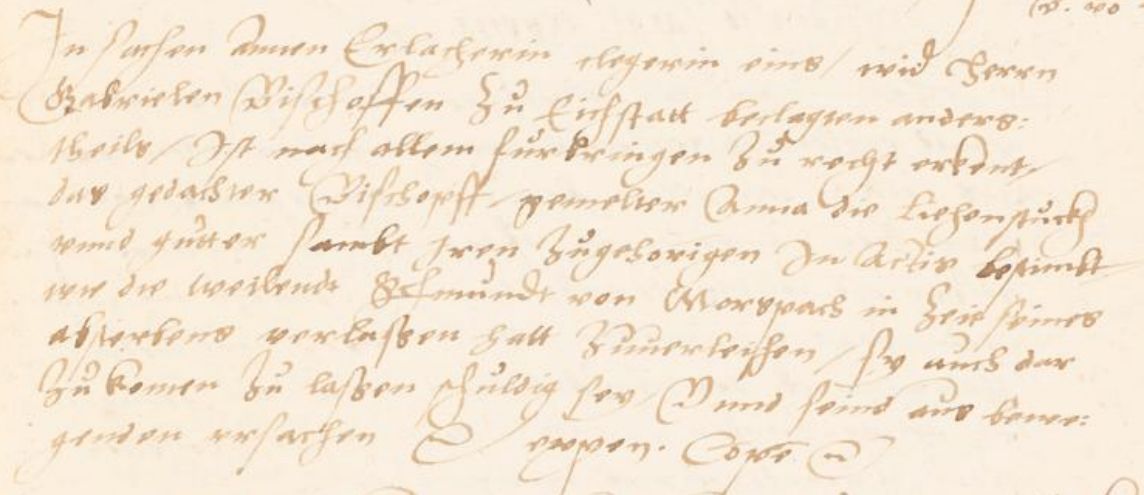 In sachen Annen Erlacherin clegerin eins / wid Herrn
Gabrielen Bischoffen zu Eichstatt beclagten anders:
theils / Ist nach allem furbringen zu recht erkent /
das gedachter Bischopff / gemelter Anna die Liehenstuckh
unnd gutter sambt Iren zugehorigen In Actis bestimbt
wie die weilendt von Morspach in Zeit seines
absterbens verlaßen hatt zuuerleihen / sy auch dar
zu komen zu laßen schuldig sey / Unnd seind aus bewe:
genden ursachen expen. Compen